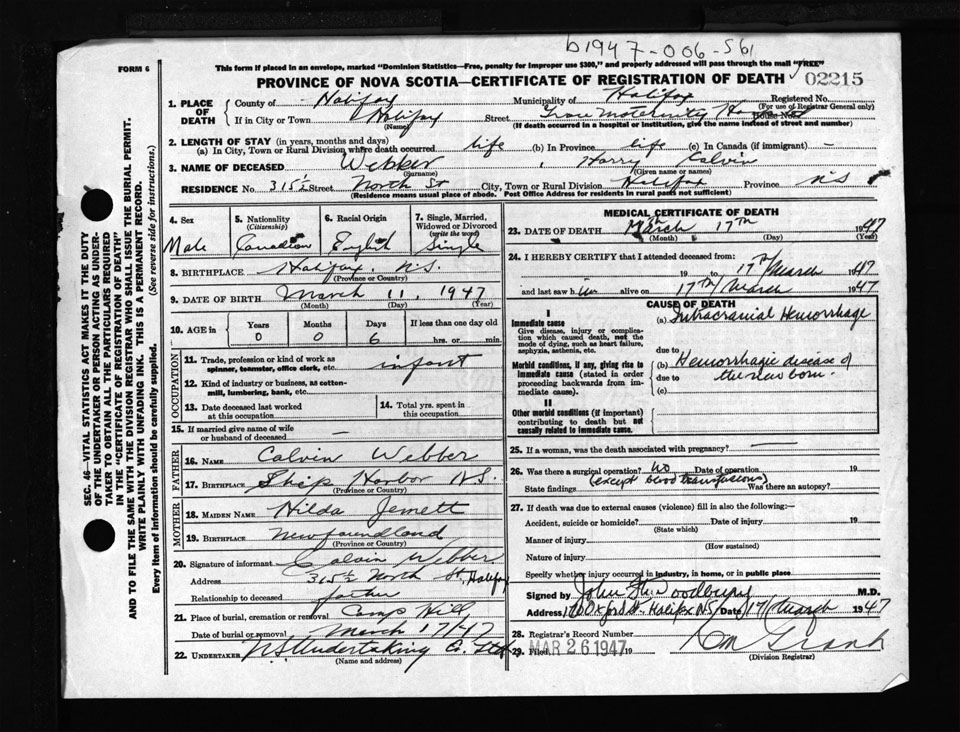 b1947-006-561
FORM 6
This form if placed in an envelope, marked "Dominion Statistics—Free, penalty for improper use $300," and properly addressed will pass through the mail "FREE"
PROVINCE OF NOVA SCOTIA—CERTIFICATE OF REGISTRATION OF DEATH 02215
1. PLACE OF DEATH
County of Halifax Municipality of Halifax Registered No.
(For use of Registrar General only)
If in City or Town Halifax Street Grace Maternity House No.
(Name) (If death occurred in a hospital or institution, give the name instead of street and number)
2. LENGTH OF STAY (in years, months and days)
(a) In City, Town or Rural Division where death occurred life (b) In Province life (c) In Canada (if immigrant) —
3. NAME OF DECEASED Webber, Harry Calvin
(Surname) (Given name or names)
RESIDENCE No. 315½ Street North St City, Town or Rural Division Halifax Province NS
(Residence means usual place of abode. Post Office Address for residents in rural parts not sufficient)
4. Sex 5. Nationality (Citizenship) 6. Racial Origin 7. Single, Married, Widowed or Divorced (write the word)
Male Canadian English Single
8. BIRTHPLACE Halifax. N.S.
(Province or Country)
9. DATE OF BIRTH March 11, 1947
(Month) (Day) (Year)
10. AGE in Years Months Days If less than one day old
0 0 6 hrs. or min.
OCCUPATION
11. Trade, profession or kind of work as spinner, teamster, office clerk, etc. infant
12. Kind of industry or business, as cotton-mill, lumbering, bank, etc.
13. Date deceased last worked at this occupation
14. Total yrs. spent in this occupation
15. If married give name of wife or husband of deceased —
FATHER
16. NAME Calvin Webber
17. BIRTHPLACE Ship Harbor N.S.
(Province or Country)
MOTHER
18. MAIDEN NAME Hilda Jemett
19. BIRTHPLACE Newfoundland
(Province or Country)
20. Signature of informant Calvin Webber
Address 315½ North St, Halifax
Relationship to deceased father
21. Place of burial, cremation or removal Camp Hill
Date of burial or removal March 17/47
22. UNDERTAKER NS Undertaking Co. Ltd
(Name and address)
MEDICAL CERTIFICATE OF DEATH
23. DATE OF DEATH March 17th 1947
(Month) (Day) (Year)
24. I HEREBY CERTIFY that I attended deceased from:
19 to 17th March 1947
and last saw him alive on 17th March 1947
CAUSE OF DEATH
I
Immediate cause
Give disease, injury or complication which caused death, not the mode of dying, such as heart failure, asphyxia, asthenia, etc.
(a) Intracranial Hemorrhage
due to
Morbid conditions, if any, giving rise to immediate cause (stated in order proceeding backwards from immediate cause).
(b) Hemorrhagic disease of
due to the new born.
(c)
II
Other morbid conditions (if important) contributing to death but not causally related to immediate cause.
25. If a woman, was the death associated with pregnancy? —
26. Was there a surgical operation? No Date of operation 19
(except blood transfusions)
State findings Was there an autopsy?
27. If death was due to external causes (violence) fill in also the following:—
Accident, suicide or homicide? Date of injury 19
(State which)
Manner of injury
(How sustained)
Nature of injury
Specify whether injury occurred in industry, in home, or in public place
Signed by John W. Woodbury M.D.
Address, Oxford St. Halifax NS Date 17 March 1947
28. Registrar's Record Number
29. Filed MAR 26 1947 19
(Division Registrar)
SEC. 46—VITAL STATISTICS ACT MAKES IT THE DUTY
OF THE UNDERTAKER OR PERSON ACTING AS UNDER-
TAKER TO OBTAIN ALL THE PARTICULARS REQUIRED
IN THE "CERTIFICATE OF REGISTRATION OF DEATH"
AND TO FILE THE SAME WITH THE DIVISION REGISTRAR WHO SHALL ISSUE THE BURIAL PERMIT.
WRITE PLAINLY WITH UNFADING INK. THIS IS A PERMANENT RECORD.
Every item of Information should be carefully supplied. (See reverse side for instructions.)